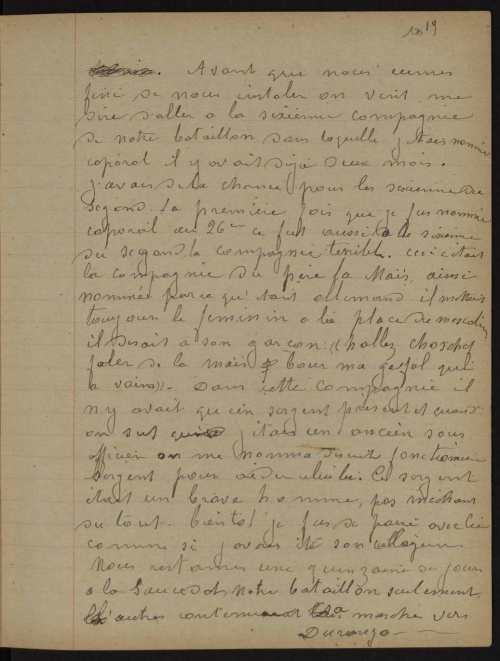 19
Avant que nous eumes
fini de nous instaler on vint me
dire d'aller a la sixieme compagnie
de notre bataillon dans laquelle j'etais nommé
caporal il y avait deja deux mois.
J'avais de la chance pour les sixieme du
segond. La première fois que je fus nommé
caporal au 26me ce fut aussi a la sixieme
du segond, la compagnie terible. ceci etait
la compagnie du père la Maïs, ainsi
nommée parce qu'etant allemand il mettait
toujour le feminin a la place du masculin
il disait a son garçon: "hallez choschef
faler de la maïs pour ma gefal qui
a vain". Dans cette compagnie il
n'y avait qu'un sergent present et quand
on sut que j'etais un ancien sous
officier on me nomma de suite fonctionnaire
sergent pour aider celui la. Ce sergent
etait un brave homme, pas mechant
du tout. bientot je fus de pair avec lui
comme si j'avais été son collegue.
Nous restames une quinzaine de jours
a la Saucedo, Notre bataillon seulement,
les autres continuerent la marche vers
Durango